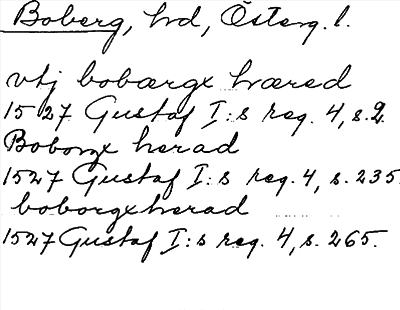 Boberg, hrd, Österg. l.
vtj bobærgx hræred
1527 Gustaf I:s reg. 4, s. 2
Boborgx herad
1527 Gustaf I:s reg. 4, s. 235.
boborgx herad
1527 Gustaf I:s reg. 4, s. 265.